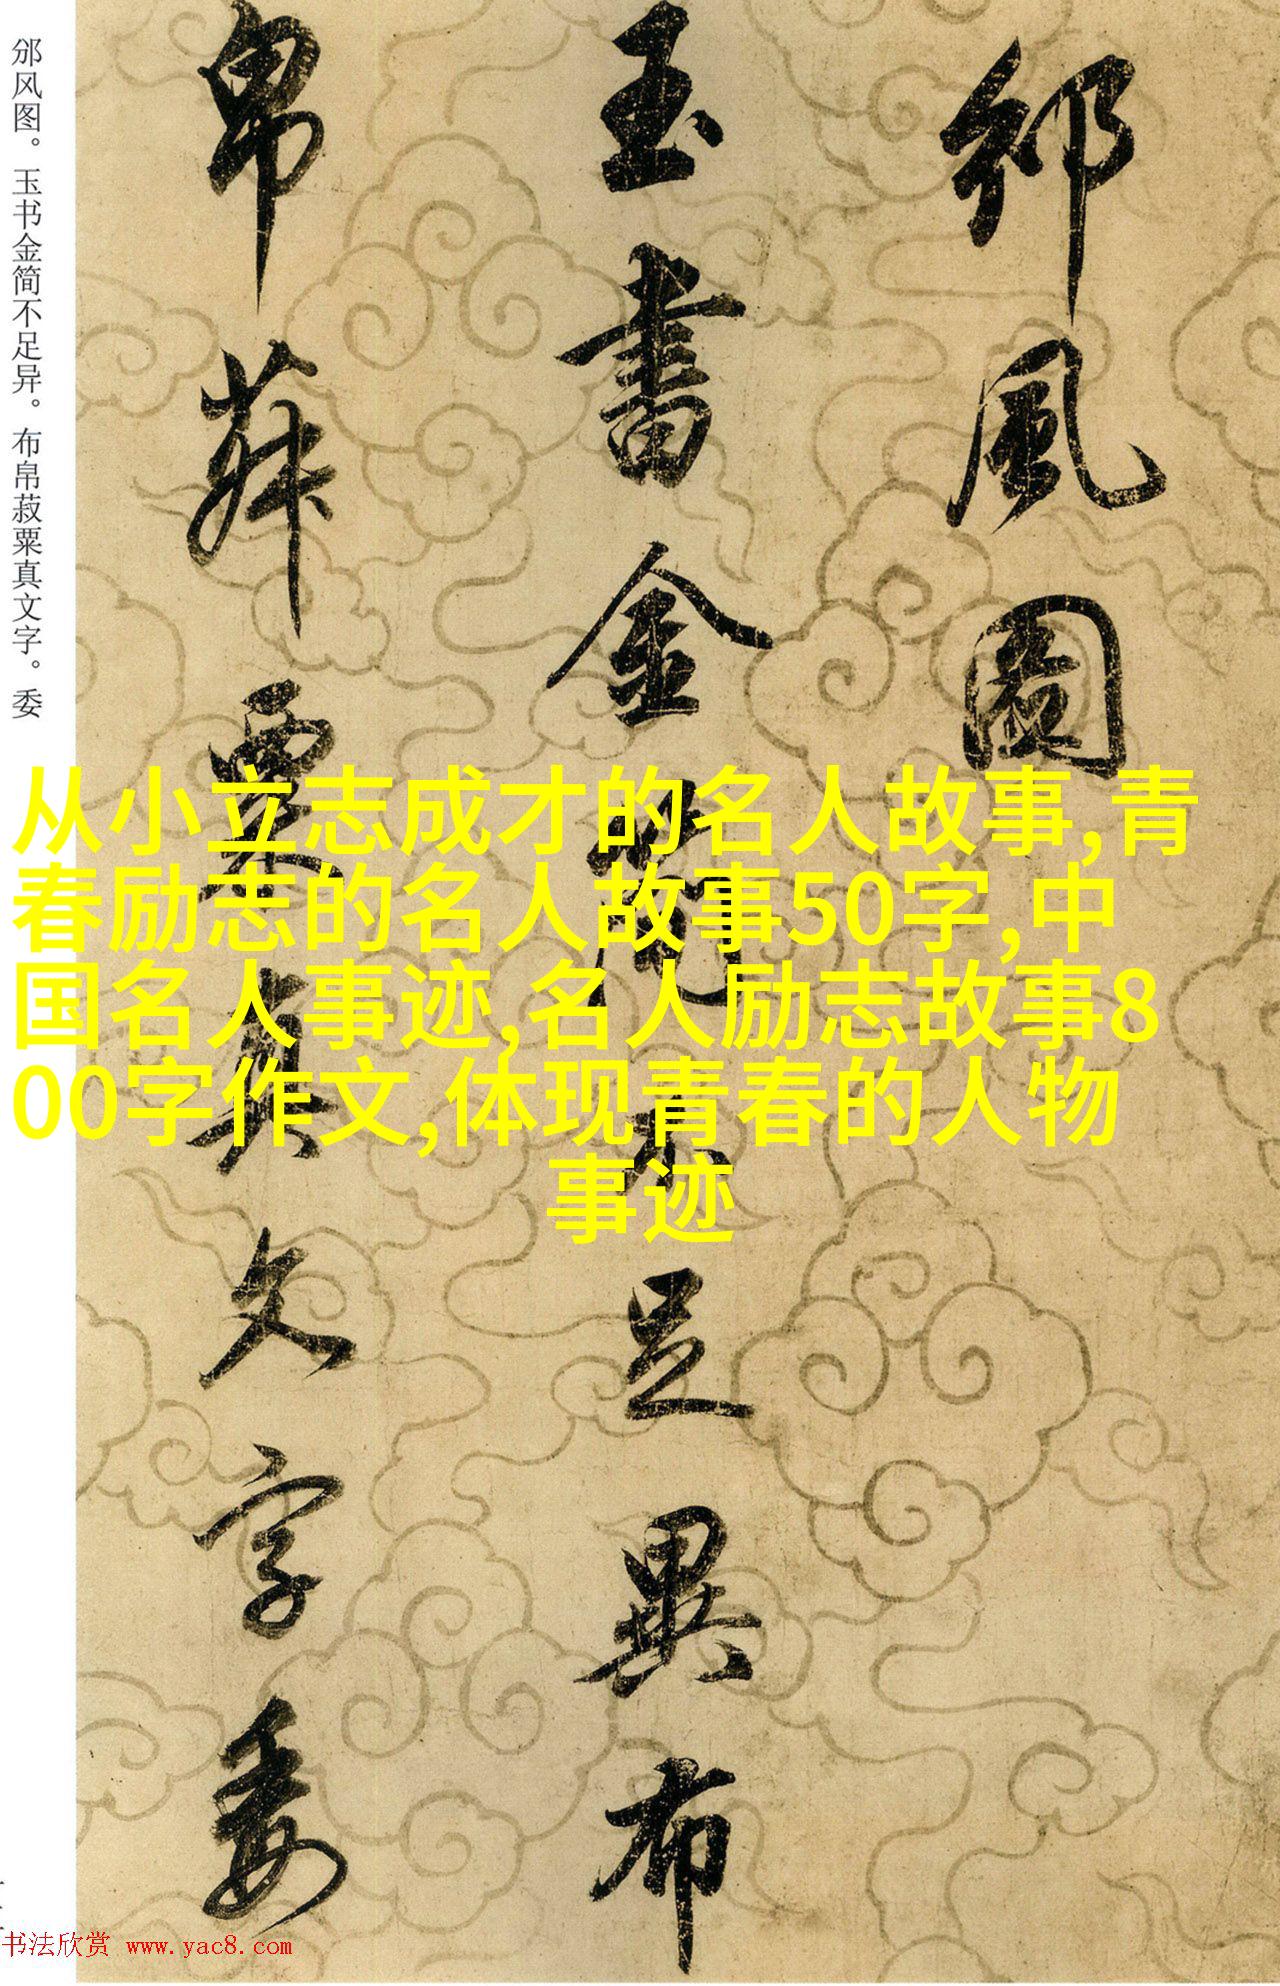 邠风图。玉书金简不足异。布帛菽粟真文字。委
邠風圖
玉書金簡不足異布
帛菽粟真文字委
从小立志成才的名人故事,青
春励志的名人故事50字,中
国名人事迹,名人励志故事8
00字作文,体现青春的人物
事迹
书法欣赏 www.yac8.com